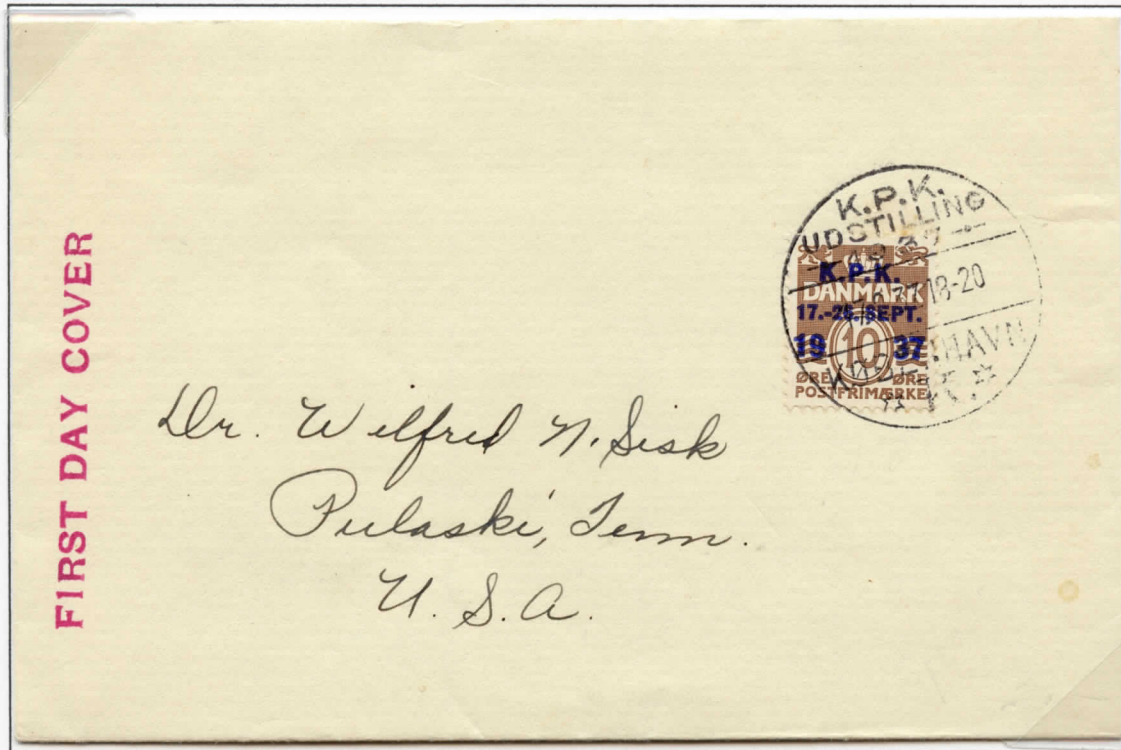 FIRST DAY COVER
K.P.K.
UDSTILLING
18-20
KØBENHAVN
K.P.K.
DANMARK
17.-26. SEPT.
19 10 37
ØRE ØRE
POSTFRIMÆRKE
Dr. Wilfred N. Sisk
Pulaski, Tenn.
U. S. A.